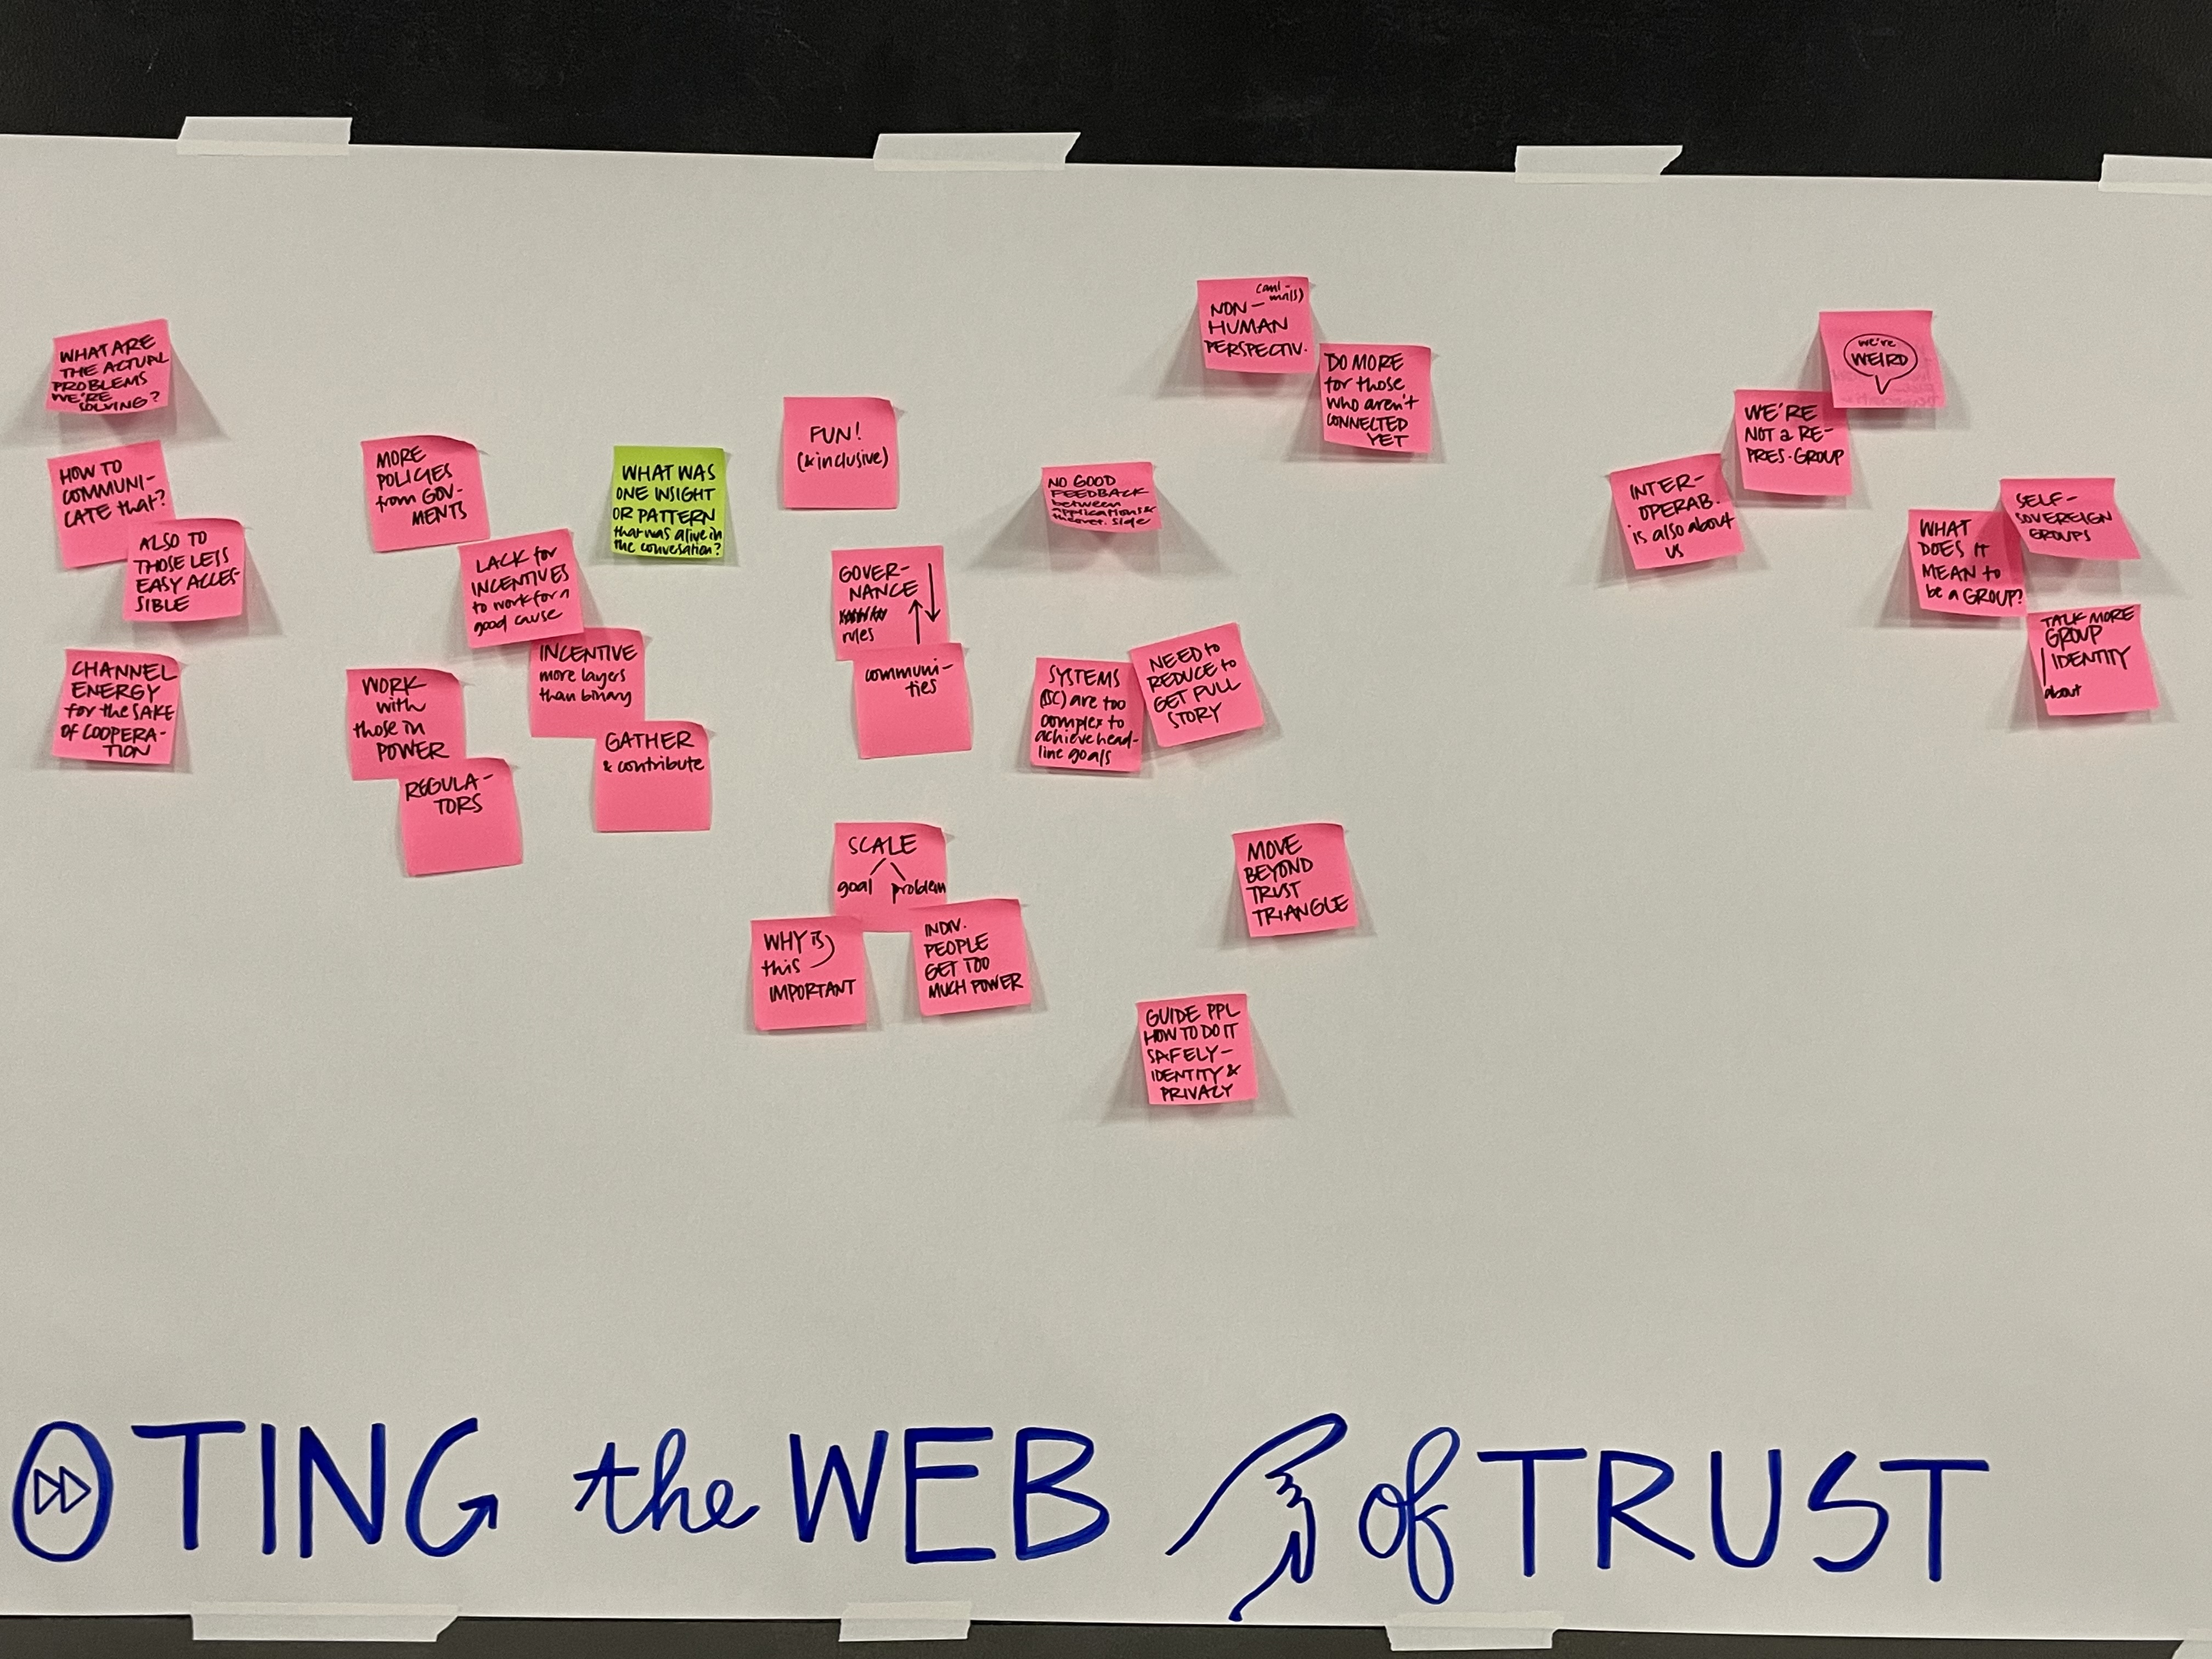 WHAT ARE
THE ACTUAL
PROBLEMS
WE'RE
SOLVING?
HOW TO
COMMUNI-
CATE that?
ALSO TO
THOSE LESS
EASY ACCES-
SIBLE
CHANNEL
ENERGY
for the SAKE
OF COOPERA-
TION
MORE
POLICIES
from GOV-
MENTS
LACK for
INCENTIVES
to work for a
good cause
INCENTIVE
more layers
than binary
GATHER
& contribute
WORK
with
those in
POWER
REGULA-
TORS
WHAT WAS
ONE INSIGHT
OR PATTERN
that was alive in
the conversation?
FUN!
(& inclusive)
GOVER-
NANCE
rules
communi-
ties
SCALE
goal problem
WHY is
this
IMPORTANT
INDIV.
PEOPLE
GET TOO
MUCH POWER
NO GOOD
FEEDBACK
between
applications &
side
SYSTEMS
are too
complex to
achieve head-
line goals
NEED to
REDUCE to
GET FULL
STORY
(ani-
mals)
NON-
HUMAN
PERSPECTIV.
DO MORE
for those
who aren't
CONNECTED
YET
MOVE
BEYOND
TRUST
TRIANGLE
GUIDE PPL
HOW TO DO IT
SAFELY-
IDENTITY &
PRIVACY
INTER-
OPERAB.
is also about
us
WE'RE
NOT a RE-
PRES. GROUP
we're
WEIRD
WHAT
DOES IT
MEAN to
be a GROUP?
SELF-
SOVEREIGN
GROUPS
TALK MORE
GROUP
IDENTITY
about
OTING the WEB of TRUST